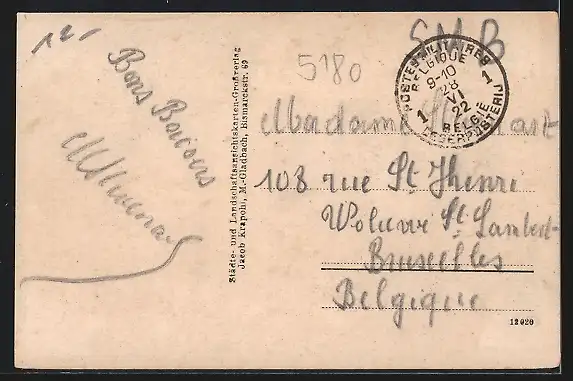 Bons Baisers
Städte- und Landschaftsansichtskarten-Großverlag
Jacob Krapohl, M.-Gladbach, Bismarckstr. 69
5180
S.M.B
POSTES MILITAIRES
BELGIQUE
9-10
28
VI
22
1 1
BELGIE
LEGERPOSTERIJ
Madame
108 rue St Henri
Woluwe St. Lambert-
Bruxelles
Belgique
12020